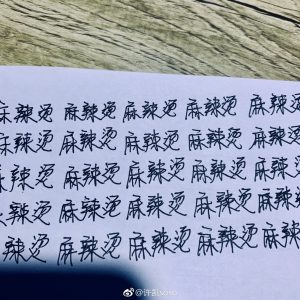 麻辣烫 麻辣烫 麻辣烫 麻辣烫 麻辣烫
麻辣烫 麻辣烫 麻辣烫 麻辣烫 麻辣烫
麻辣烫 麻辣烫 麻辣烫 麻辣烫 麻辣烫
麻辣烫 麻辣烫 麻辣烫 麻辣烫 麻辣烫
辣烫 麻辣烫 麻辣烫 麻辣烫 麻辣烫